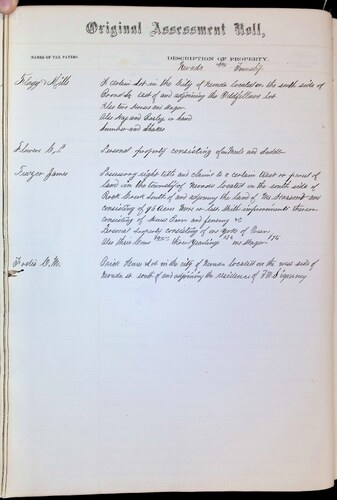 Original Assessment Roll,
NAMES OF TAX PAYERS.
DESCRIPTION OF PROPERTY.
Nevada Township
Flagg & Mills
A certain lot in the City of Nevada located on the south side of
Broad St. East of and adjoining the Oddfellows Lot
Also two Horses and Wagon
Also Hay and Barley on hand
Lumber and Shakes
Personal property consisting of and Saddle
James
Possessory right title and claim to a certain tract or parcel of
land in the township of Nevada located on the south side of
Rock Creek South of and adjoining the land of
consisting of 90 Acres More or Less. With improvements thereon
consisting of House Barn and fencing &c
Personal property consisting of six Yoke of Oxen
Also three Cows Yearlings one Wagon
W. M.
Brick House & Lot in the city of Nevada located on the west side of
Nevada St. south of and adjoining the residence of